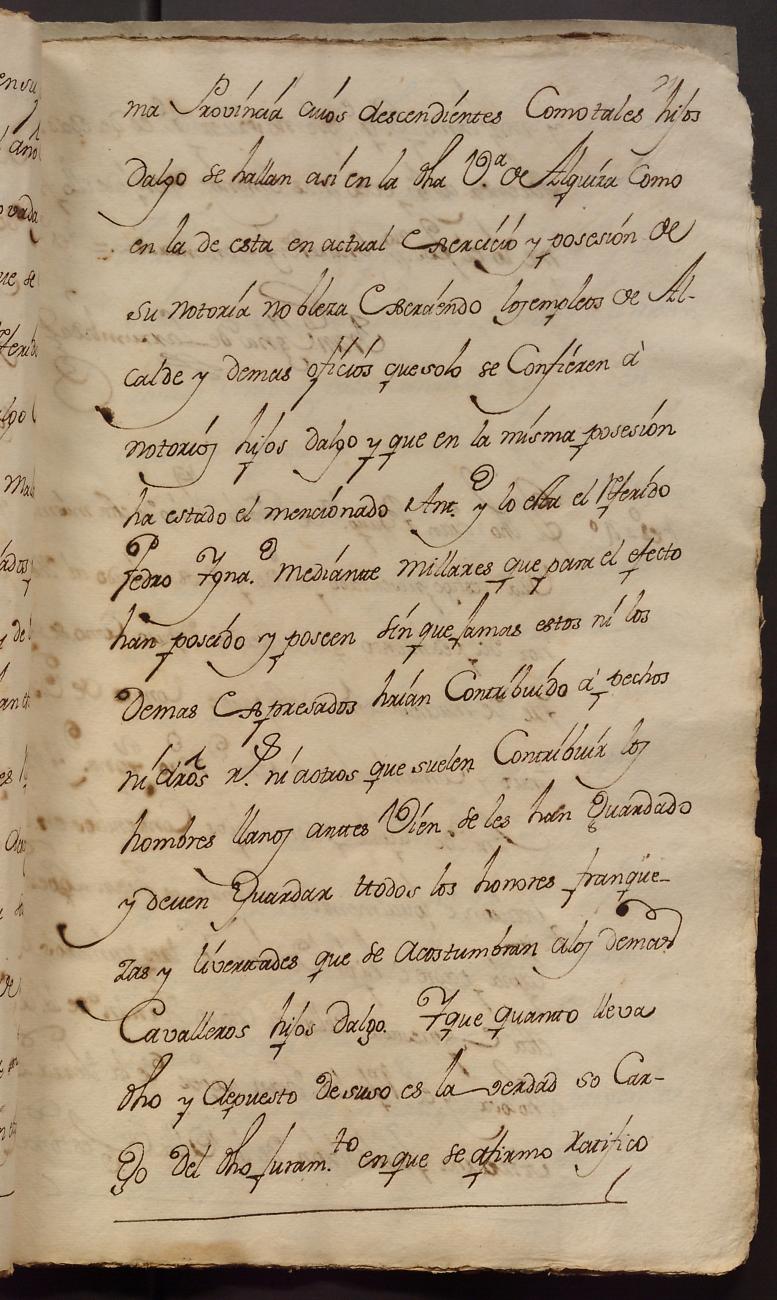 ma Provincia cuios descendientes Como tales hijos
dalgo se hallan asi en la dha V.ª de Alquiza Como
en la de esta en actual Exercicio y posesion de
su notoria nobleza Exerciendo los empleos de Al-
calde y demas oficios que solo se Confieren à
notorios hijos dalgo y que en la misma posesion
ha estado el mencionado Ant.º y lo esta el Referido
Pedro Ygna.º mediante millares que para el efecto
han poseido y poseen sin que jamas estos ni los
demas Expresados haian Contribuido à pechos
ni dros r.s ni aotros que suelen Contribuir los
hombres llanos antes Vien se les han Guardado
y deven Guardar ttodos los honores franque-
zas y livertades que se Acostumbran alos demas
Cavalleros hijos dalgo. Y que quanto lleva
dho y depuesto de suso es la verdad so Car-
Go del dho juram.to en que se afirmo Ratifico